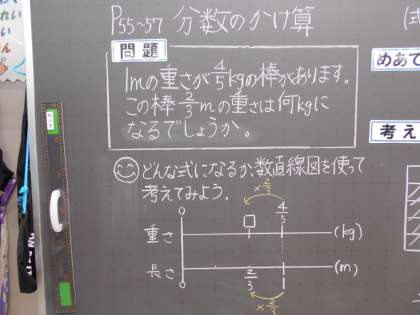 P55~57 分数のかけ算
問題
1mの重さが4/5kgの棒があります。
この棒2/3mの重さは何kgに
なるでしょうか。
どんな式になるか、数直線図を使って
考えてみよう。
×2/3
0 □ 4/5
重さ (kg)
長さ (m)
0 2/3 1
×2/3
めあて
考え